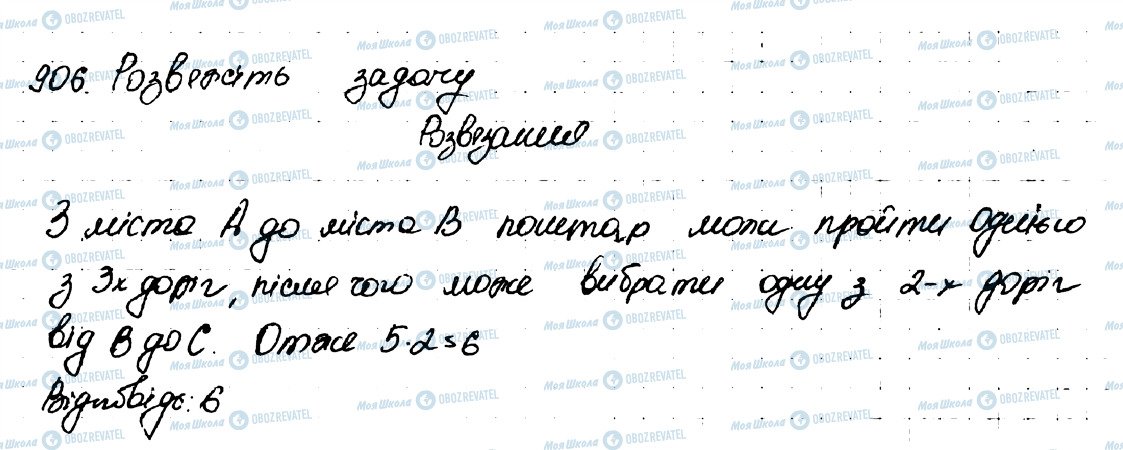 906. Розвежіть задачу
Розвезання
З міста А до міста В поштар може пройти однією
з 3х доріг, після чого може вибрати одну з 2-х доріг
від В до С. Отже 5·2=6
Відповідь: 6